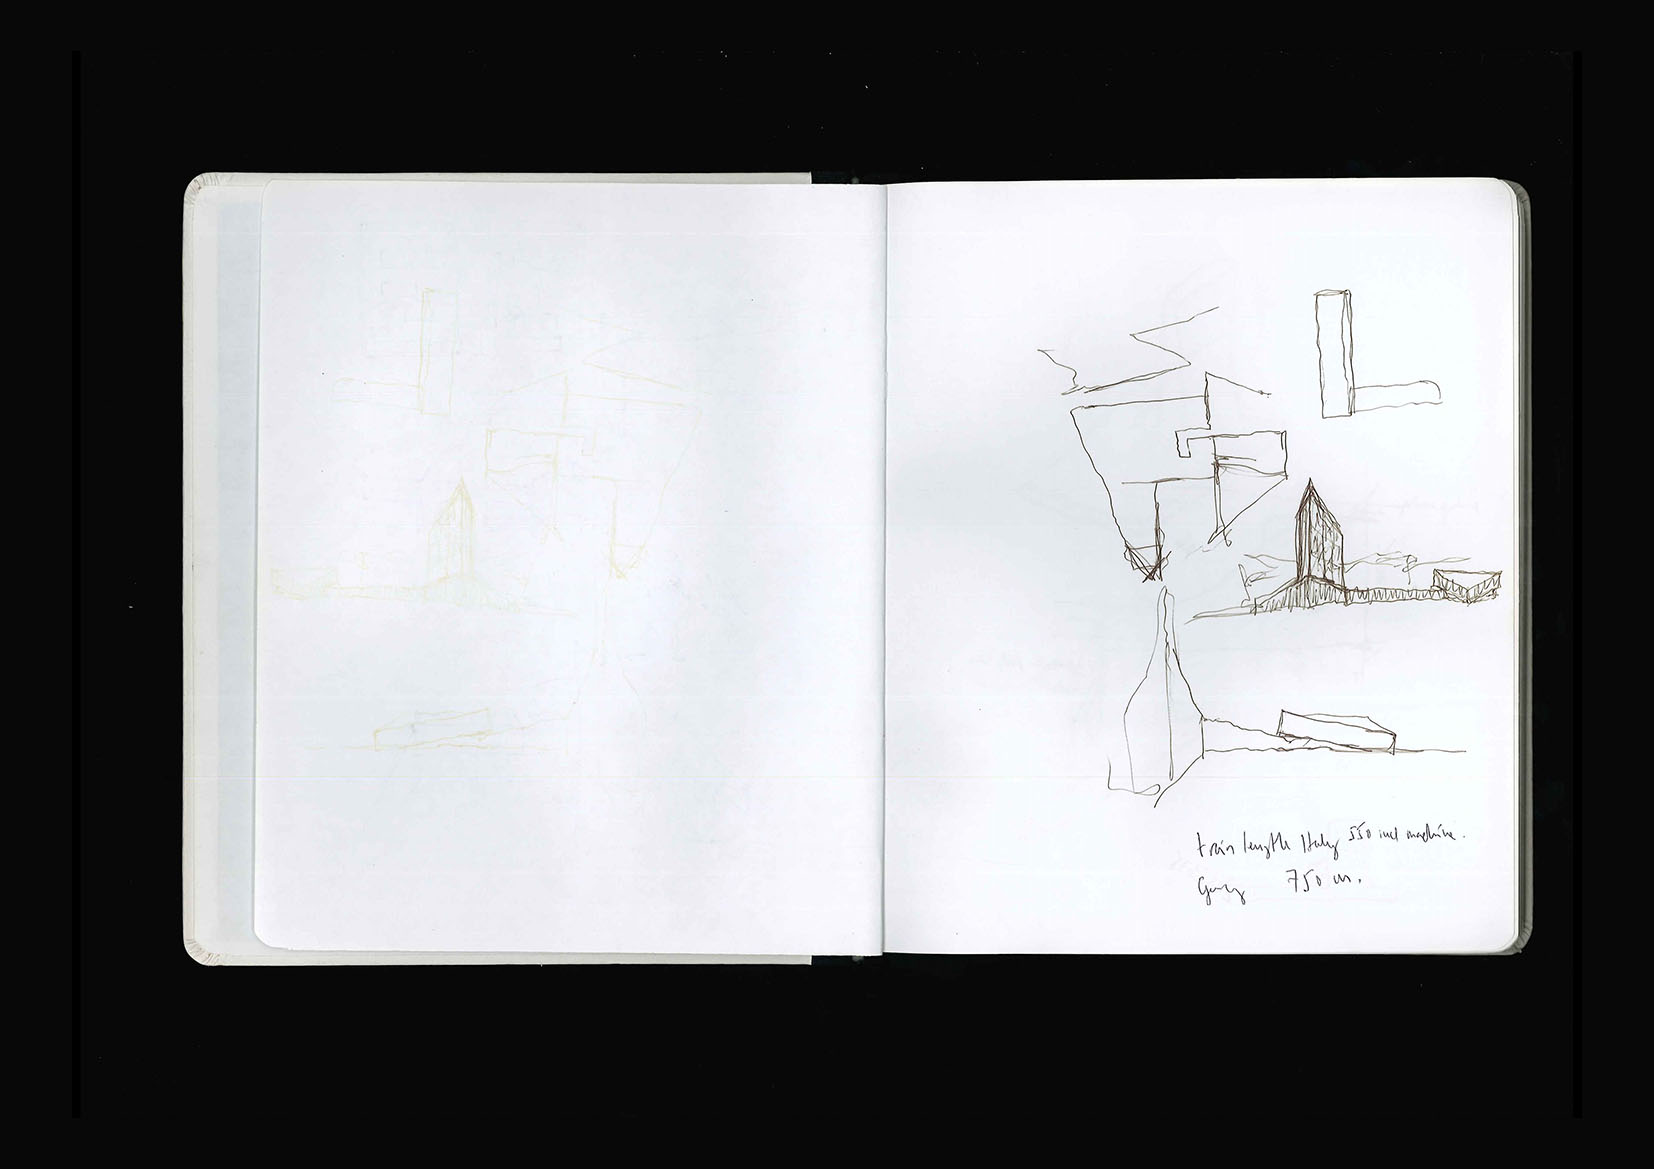 train length Italy 550 incl machine.
750 m.